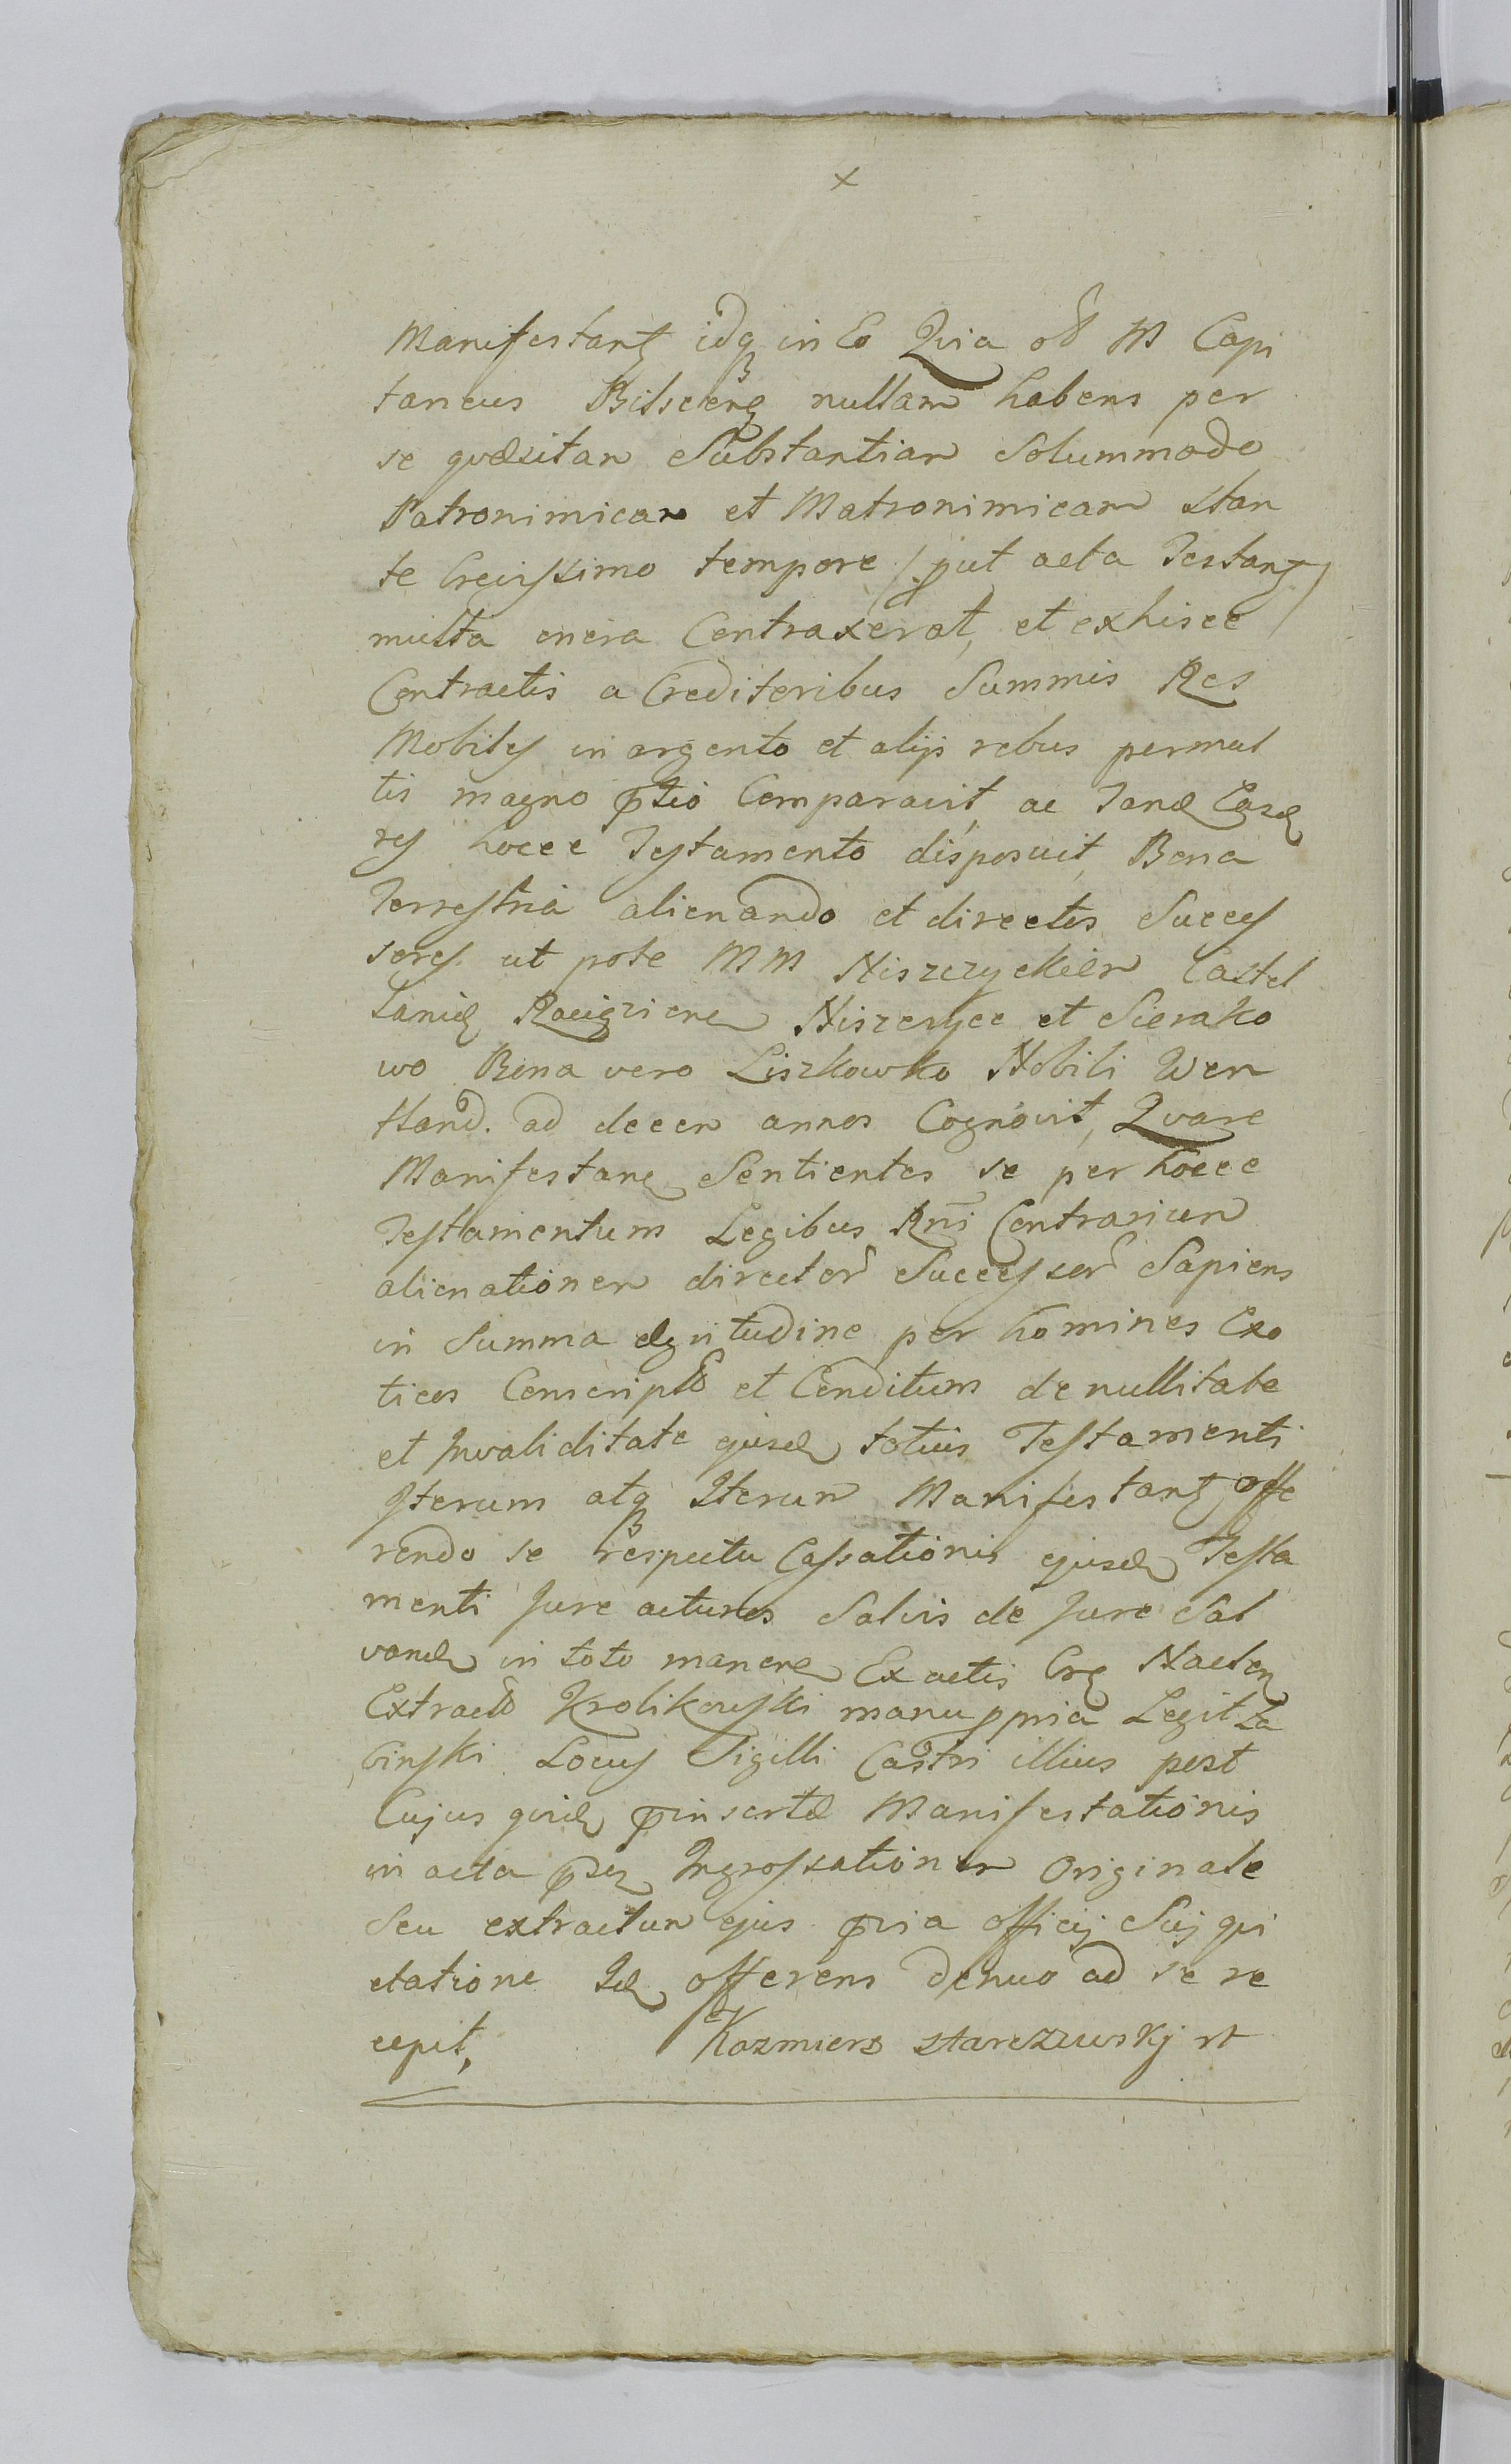 x
Manifestant idq in Eo Quia od M Capi
taneus Bilscens nullam habens per
se qvæsitam Substantiam Solummodo
Patronimicam et Matronimicam stan
te brevissimo tempore /put acta Testant/
multa onera Contraxerat, et exhisce
Contractis a Creditoribus Summis Res
Mobiles in argento et alijs rebus permul
tis magno ptio Comparavit, ac Tand Easd
res hocce Testamento disposuit, Bona
Terrestria alienando et directis Succes
sores ut pote MM Niszczyckiem Castel
lanid Raciązien Niszczyce et Sierako
wo Bona vero Liszkowko Nobili Wen
tland. ad decem annos Cognovit, Quare
Manifestan Sentientes se per hocce
Testamentum Legibus Rni Contrarium
alienationem director Successor Sapiens
in Summa ægritudine per homines Exo
ticos Conscript et Conditum de nullitate
et Invaliditate ejusd totius Testamenti
Iterum atq Iterum Manifestant, offe
rendo se respectu Cassationis ejusd Testa
menti Jure acturos Salvis de Jure Sal
vand in toto manen Ex actis Cre Naclen
Extract Krolikowski manu ppria Legit La
binski Locus Sigilli Castri illius post
Cujus quid pinsertæ Manifestationis
in acta psen Ingrossationem Originale
Seu extractum ejus pria officij Suj qui
etatione Id offerens denuo ad se re
cepit, Kazmierz starczewskj